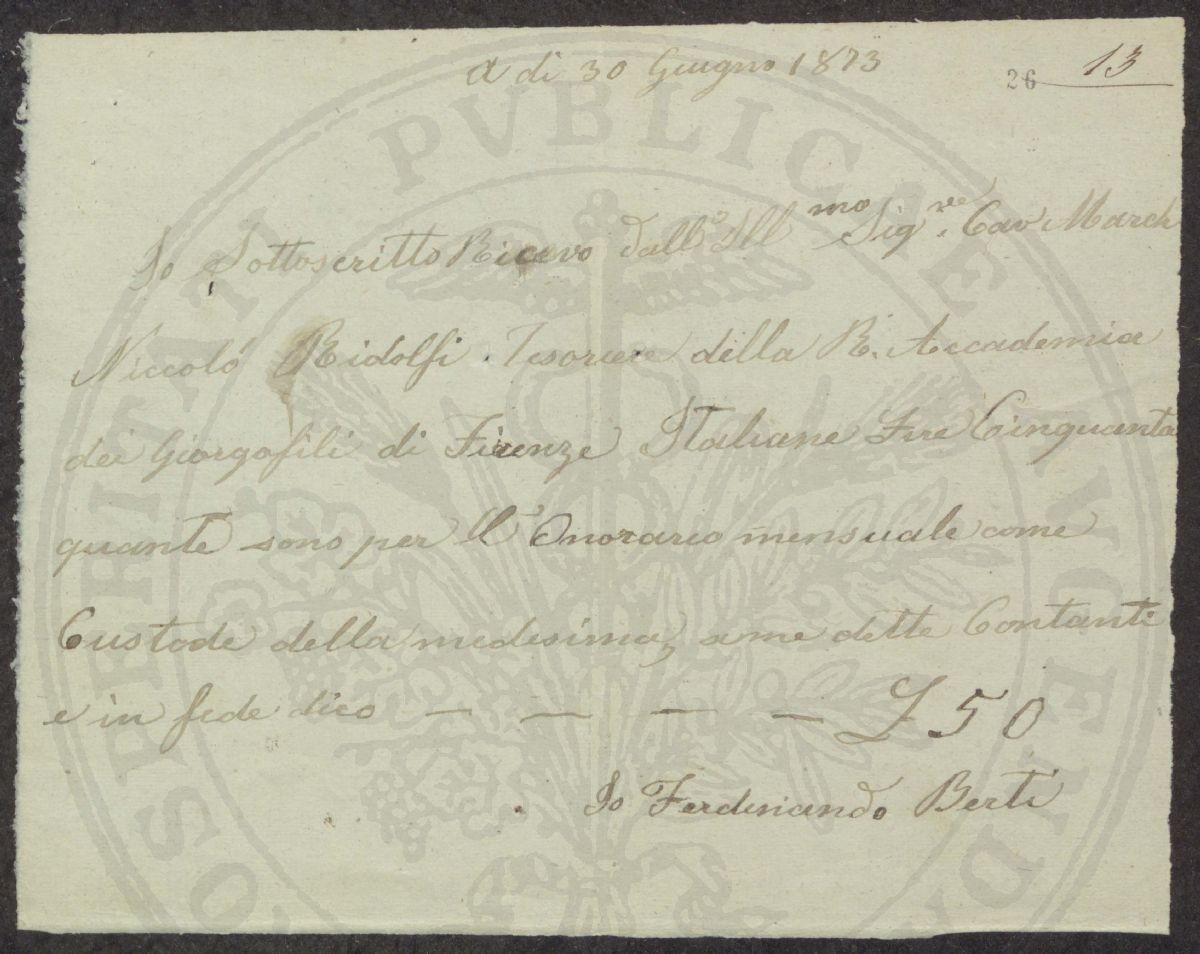 A di 30 Giugno 1873
26 13
Io Sottoscritto Ricevo dall' Ill mo Sig re. Cav March
Niccoló Ridolfi. Tesoriere della R. Accademia
dei Giorgofili di Firenze Italiane Lire Cinquanta
quante sono per ll' Onorario mensuale come
Custode della medesima, a me dette Contanti
e in fede dico — — — — £ 50
Io Ferdinando Berti
PROSPERITATI PVBLICAE AVGENDAE